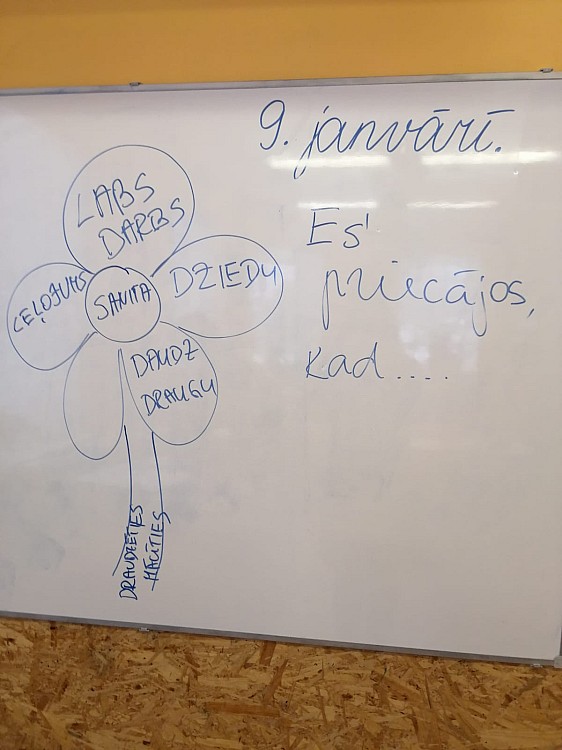 9. janvārī.
LABS
DARBS
CEĻOJUMS
SANITA
DZIEDU
DAUDZ
DRAUGU
DRAUDZĒTIES
MĀCĪTIES
Es
priecājos,
kad....